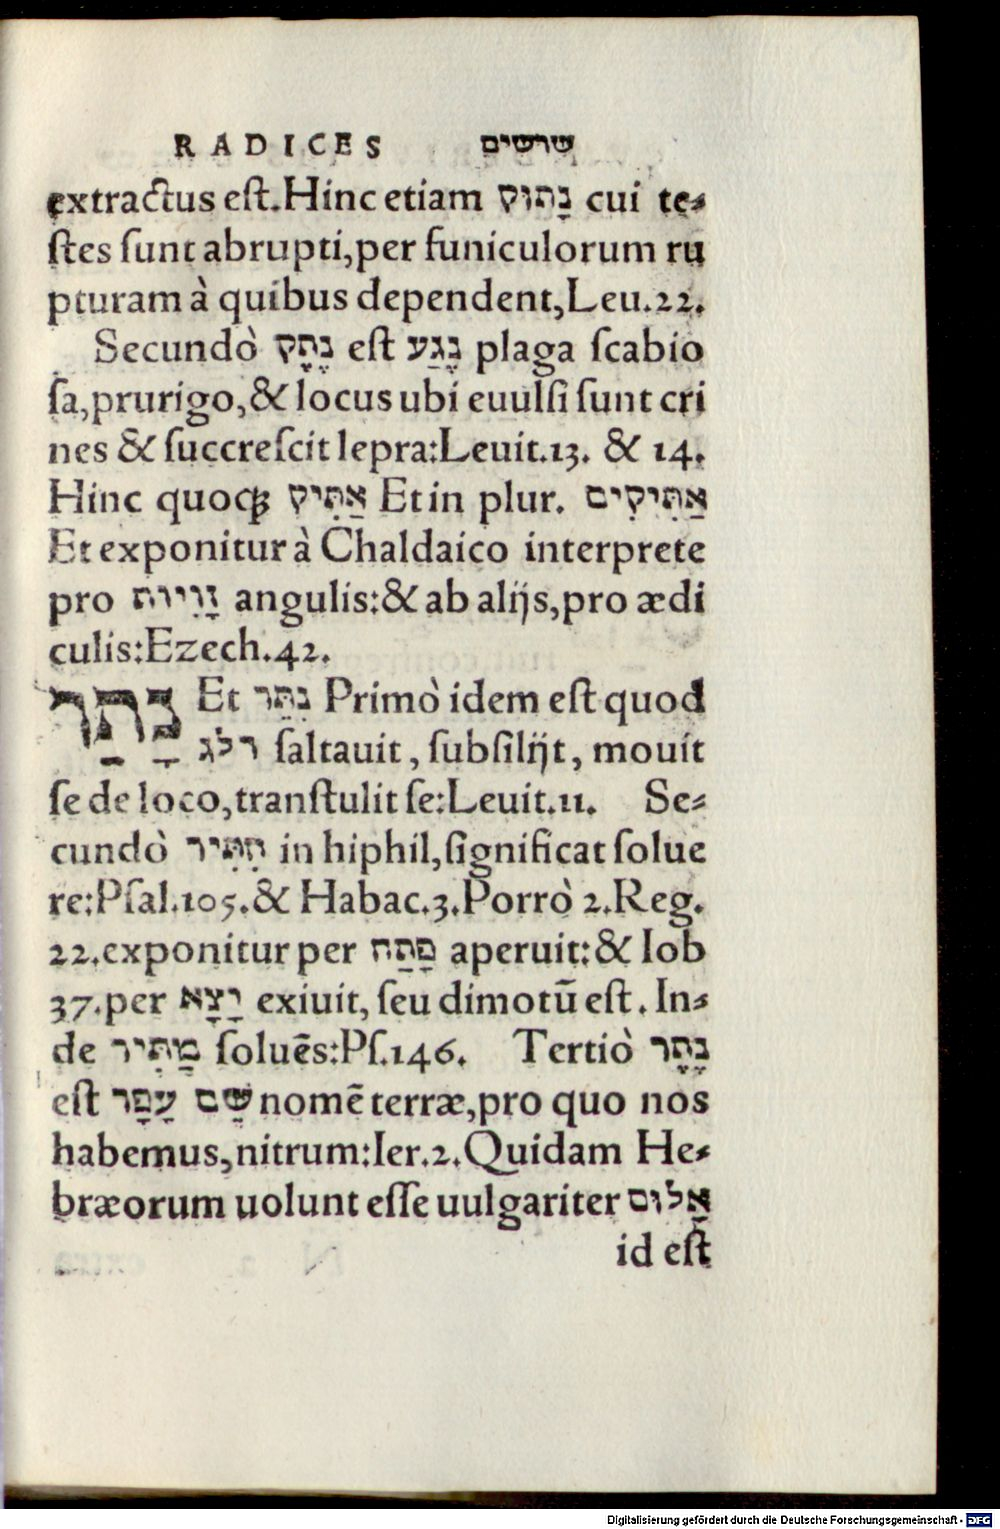 RADICES שרשים
extractus est. Hinc etiam נָתוּק cui te-
stes sunt abrupti, per funiculorum ru
pturam à quibus dependent, Leu.22.
Secundò נֶתֶק est נֶגַע plaga scabio
sa, prurigo, & locus ubi euulsi sunt cri
nes & succrescit lepra: Leuit.13. & 14.
Hinc quoqꝫ אַתִּיק Et in plur. אַתִּיקִים
Et exponitur à Chaldaico interprete
pro זָוִיּוֹת angulis: & ab alijs, pro ædi
culis: Ezech.42.
נָתַר Et נִתֵּר Primò idem est quod
דלג saltauit, subsilijt, mouit
se de loco, transtulit se: Leuit.11. Se-
cundò הִתִּיר in hiphil, significat solue
re: Psal.105. & Habac.3. Porrò 2.Reg.
22. exponitur per פָּתַח aperuit: & Iob
37. per יָצָא exiuit, seu dimotũ est. In-
de מַתִּיר soluẽs: Ps.146. Tertiò נֶתֶר
est שֵׁם עָפָר nomẽ terræ, pro quo nos
habemus, nitrum: Ier.2. Quidam He-
bræorum uolunt esse uulgariter אַלוּם
id est
Digitalisierung gefördert durch die Deutsche Forschungsgemeinschaft - DFG